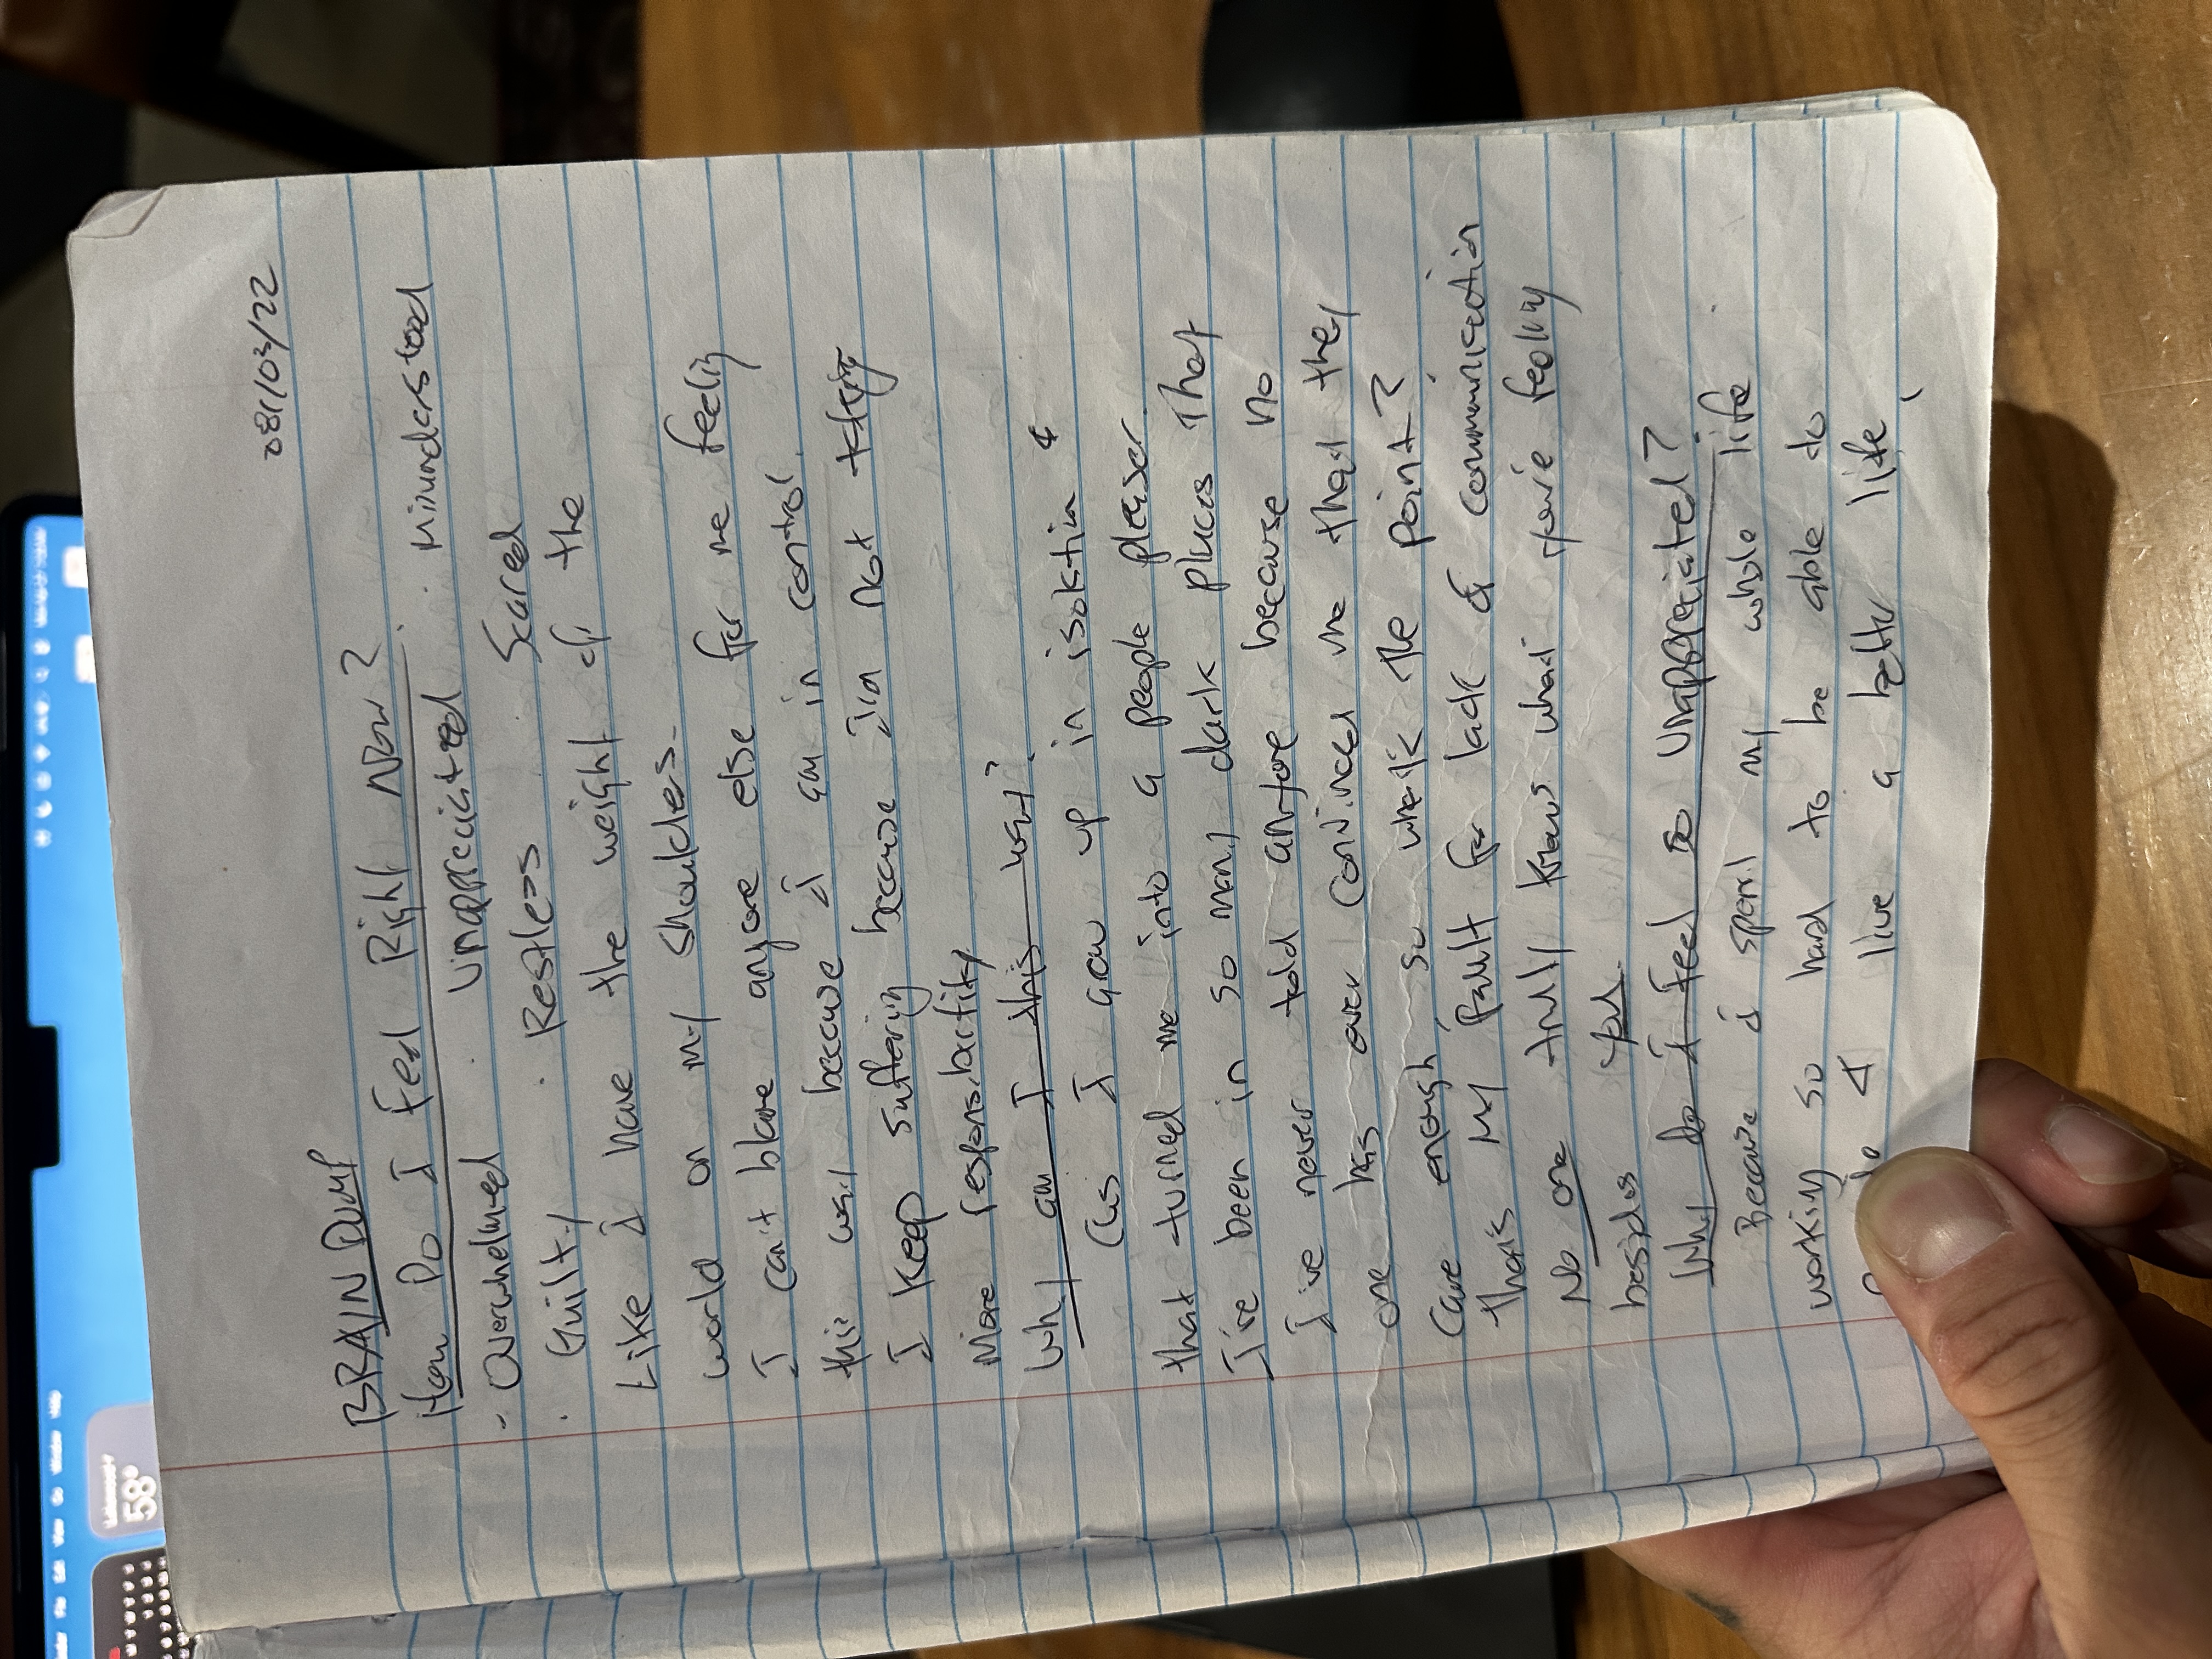 08/03/22
BRAIN DUMP
How Do I Feel Right Now?
- Overwhelmed . Unappreciated . Misunderstood
. Guilty . Restless . Scared
Like I have the weight of the
world on my shoulders.
I can't blame anyone else for me feeling
this way because I am in control.
I keep suffering because I'm not taking
More responsibility.
Why am I this way?
Cus I grew up in isolation &
that turned me into a people pleaser.
I've been in so many dark places that
I've never told anyone because no
one has ever convinced me that they
Care enough, so what's the point?
that's My fault for lack of communication
No one truly knows what you're feeling
besides you.
Why do I feel so unappreciated?
Because I spent my whole life
working so hard to be able to
& live a better life
58°